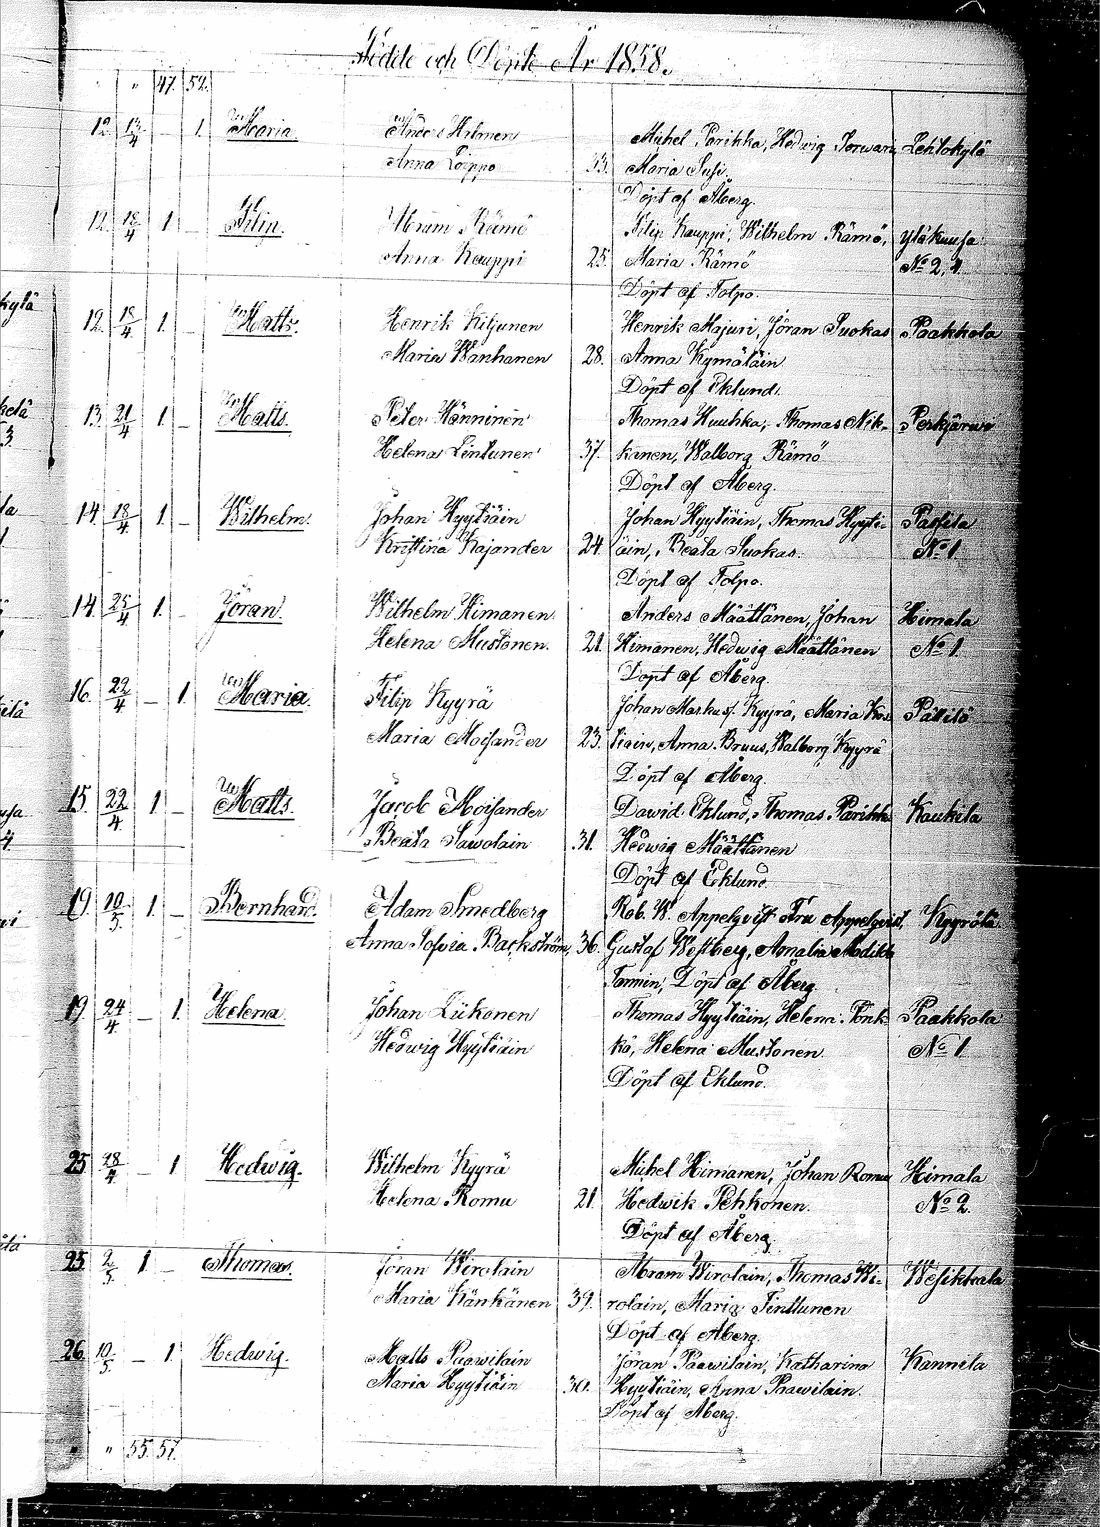 Födde och Döpte År 1858.
" " 47. 52.
12. 13/4 — 1. Maria. Anders Hilmen Michel Parikka, Hedwig Torwars Lehtokylä
Anna Toippo 33. Maria Susi.
Döpt af Åberg.
12. 18/4 1 — Filip. Abram Rämö Filip Kauppi, Wilhelm Rämö, Yläkuusa
Anna Kauppi 25. Maria Rämö No 2, 4.
Döpt af Tolpo.
12. 18/4 1. — Matts. Henrik Kiljunen Henrik Majuri, Jöran Suokas Paakkola
Maria Wanhanen 28. Anna Kymäläin
Döpt af Eklund.
13. 21/4 1. — Matts. Peter Hänninen Thomas Huuhka, Thomas Nik- Perkjärwi
Helena Lintunen 37. kanen, Walborg Rämö
Döpt af Åberg.
14. 18/4 1. — Wilhelm. Johan Hyytiäin Johan Hyytiäin, Thomas Hyyti- Passila
Kristina Kajander 24. äin, Beata Suokas. No 1
Döpt af Tolpo.
14. 25/4 1. — Jöran. Wilhelm Himanen. Anders Määttänen, Johan Himala
Helena Mustonen. 21. Himanen, Hedwig Määttänen No 1.
Döpt af Åberg.
16. 22/4 — 1. Maria. Filip Kyyrä Johan Markus. Kyyrä, Maria Kos Pällilä
Maria Moisander 23. tiain, Anna Bruus, Walborg Kyyrä
Döpt af Åberg.
15. 22/4 1 — Matts. Jacob Moisander Dawid Eklund, Thomas Parikka Kaukila
Beata Sawolain 31. Hedwig Määttänen
Döpt af Eklund
19. 10/5 1. — Bernhard. Adam Smedberg Rob. W. Appelqvist Fru Appelqvist, Kyyrölä
Anna Sofvia Backström, 36. Gustaf Westberg, Amalia
Tammin, Döpt af Åberg
19. 24/4 — 1. Helena. Johan Liikonen Thomas Hyytiäin, Helena Pönk- Paakkola
Hedwig Hyytiäin kö, Helena Mustonen No 1
Döpt af Eklund.
25. 28/4 — 1 Hedwig. Wilhelm Kyyrä Michel Himanen, Johan Romu Himala
Helena Romu 21. Hedwik Pehkonen. No 2.
Döpt af Åberg.
25. 2/5 1 — Thomas. Jöran Wirolain Abram Wirolain, Thomas Wi- Wesikkala
Maria Känkänen 39. rolain, Maria Tinttunen
Döpt af Åberg.
26. 10/5 — 1. Hedwig. Matts Paawilain Jöran Paawilain, Katharina Kannila
Maria Hyytiäin 30. Hyytiäin, Anna Paawilain.
Döpt af Åberg.
" " 55. 57.